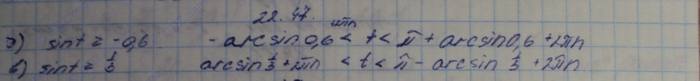 22.47.
а) sint = -0,6 - arcsin0,6 + 2πn < t < π + arcsin0,6 + 2πn
б) sint = 1/3 arcsin 1/3 + 2πn < t < π - arcsin 1/3 + 2πn